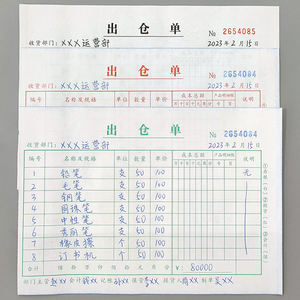 出仓单
№ 2654085
收货部门: XXX运营部 2023年2月15日
出仓单
№ 2654084
收货部门: XXX运营部 2023年2月15日
编号 名称及规格 单位 数量 单价 成本总额 说明
出仓单
№ 2654084
收货部门: XXX运营部 2023年2月15日
编号 名称及规格 单位 数量 单价 成本总额 说明
1 铅笔 支 50 100 无
2 毛笔 支 50 100
3 钢笔 支 50 100
4 圆珠笔 支 50 100
5 中性笔 支 50 100
6 秀丽笔 支 50 100
7 橡皮擦 个 50 100
8 订书机 个 50 100
合计 ¥ 80000